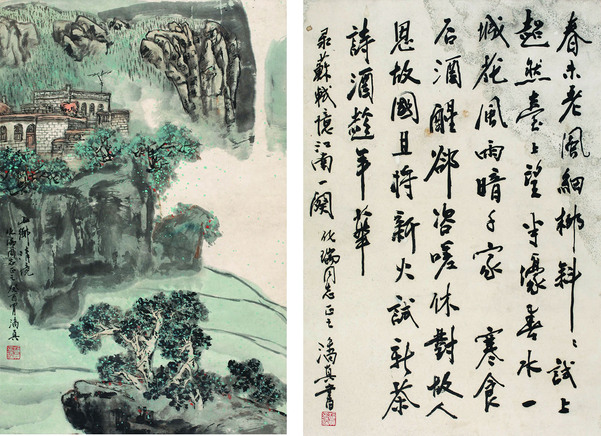 春未老風細柳斜〻試上
超然臺上望半濠春水一
城花風雨暗千家 寒食
后酒醒卻咨嗟休對故人
思故國且將新火試新茶
詩酒趁年華
录蘇軾憶江南一闋 化瑞同志正之 潘真書
山鄉
潘真